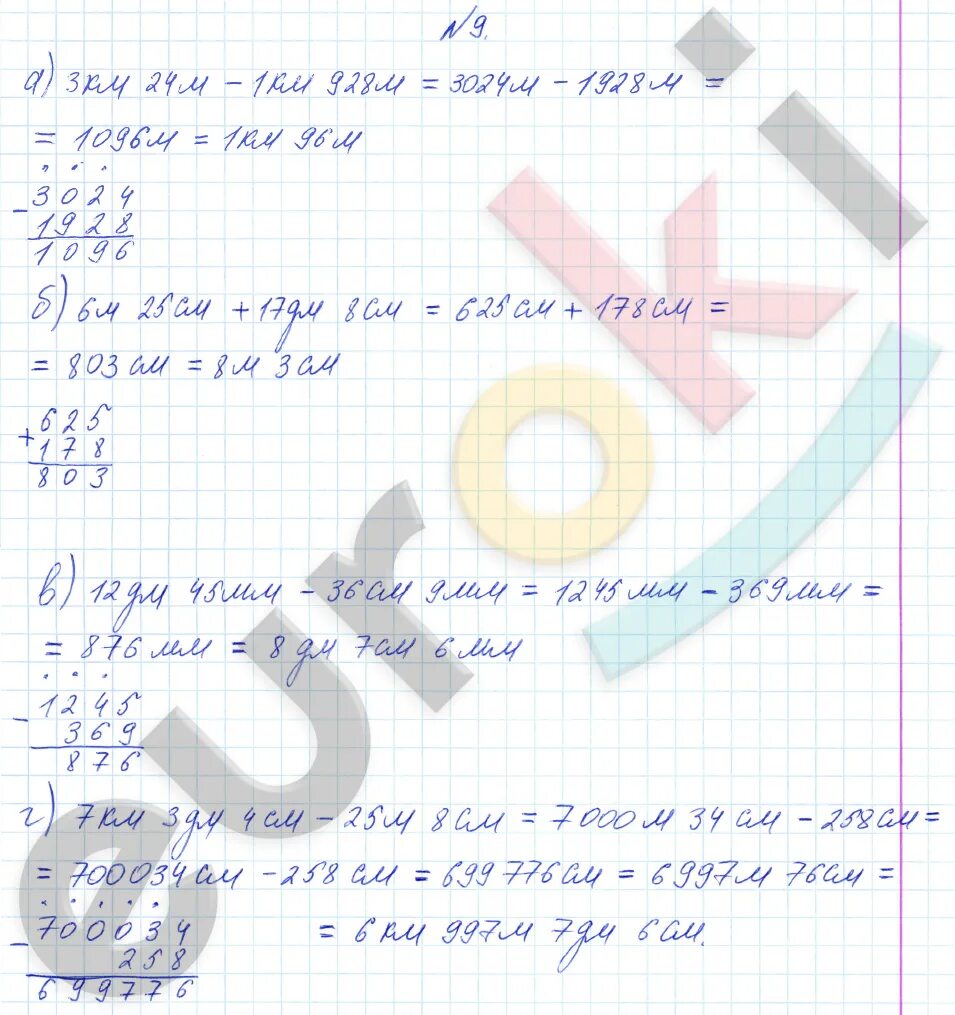 №9.
а) 3км 24м - 1км 928м = 3024м - 1928м =
= 1096м = 1км 96м
- 3024
1928
1096
б) 6м 25см + 17дм 8см = 625см + 178см =
= 803см = 8м 3см
+ 625
178
803
в) 12дм 45мм - 36см 9мм = 1245мм - 369мм =
= 876мм = 8дм 7см 6мм
- 1245
369
876
г) 7км 3дм 4см - 25м 8см = 7000м 34см - 258см =
= 700034см - 258см = 699776см = 6997м 76см =
- 700034
258
699776
= 6км 997м 7дм 6см.
euroki